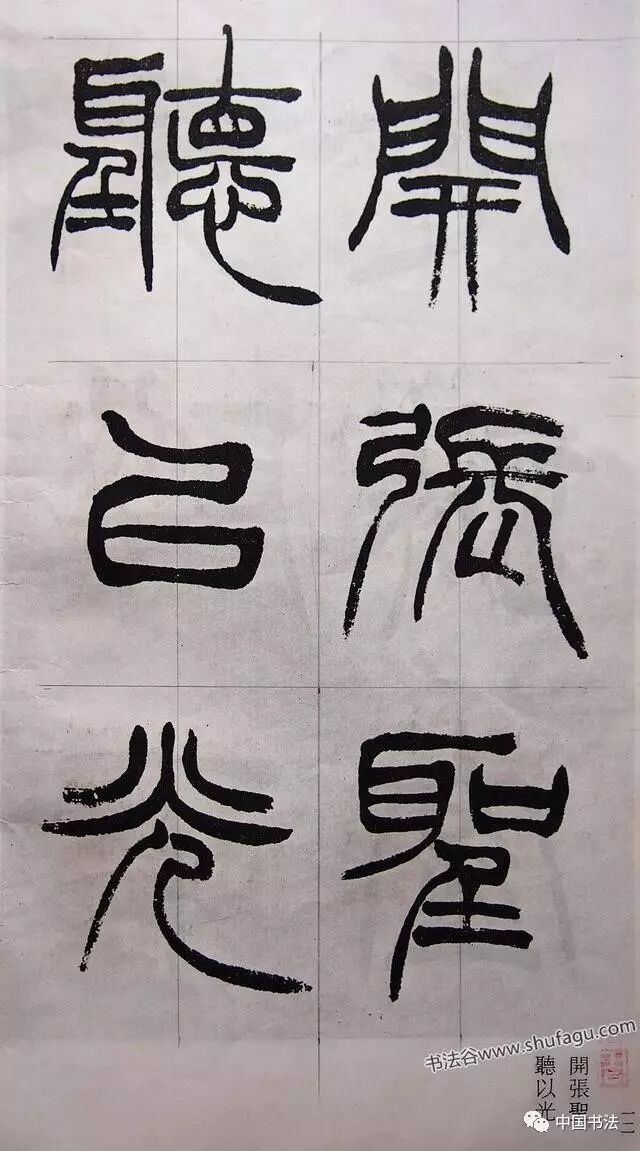 開張聖
聽㠯光
書法谷www.shufagu.com
開張聖
聽以光
一二
中国书法